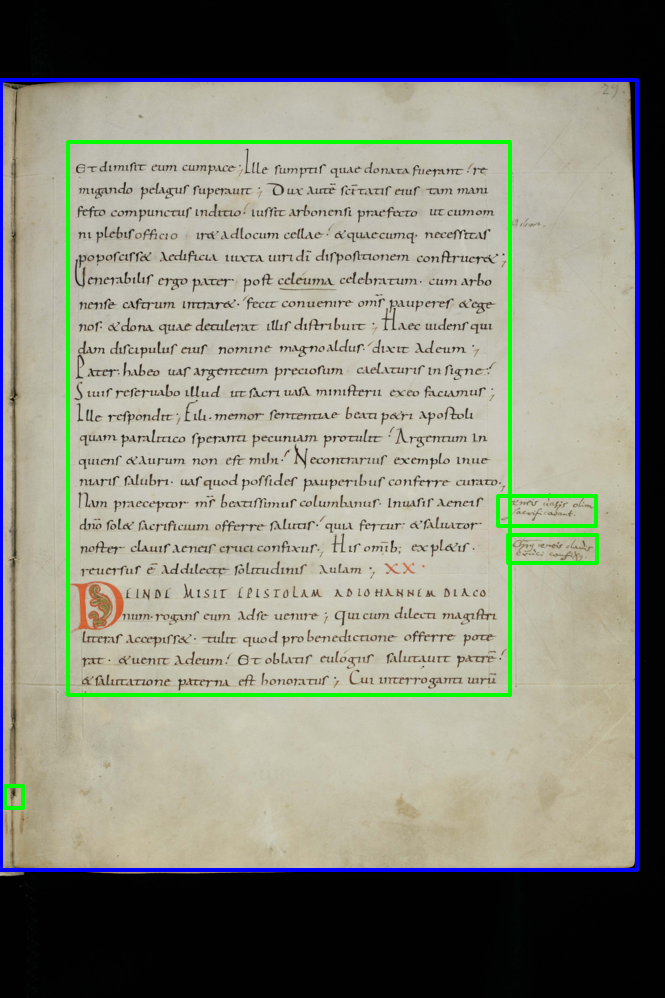 29
Et dimisit eum cumpace; Ille sumptis quae donata fuerant · re
migando pelagus superauit; Dux autē scītatis eius tam mani
festo compunctus inditio · iussit arbonensi praefecto ut cum om
ni plebis officio ire adlocum cellae · & quaecumq; necessitas
poposciss& Aedificia iuxta uiri dī dispositionem constru&;
Uenerabilis ergo pater post celeuma celebratum · cum arbo
nense castrum intrar& · fecit conuenire oms̄ pauperes & ege
nos · & dona quae detulerat illis distribuit; Haec uidens qui
dam discipulus eius nomine magnoaldus · dixit Adeum;
Pater · habeo uas argenteum preciosum caelaturis insigne ·
Siuis reseruabo illud ut sacri uasa ministerii ex eo faciamus;
Ille respondit; Fili · memor sententiae beati p&ri apostoli
quam paralitico speranti pecuniam protulit · Argentum in
quiens & Aurum non est mihi · Necontrarius exemplo inue
niaris salubri · uas quod possides pauperibus conferre curato;
Nam praeceptor ms̄ beatissimus columbanus · Inuasis aeneis
dn̄o sol& sacrificium offerre salutis · quia fertur & saluator
noster clauis aeneis cruci confixus; His omīb; expl&is ·
reuersus ē Addilectę solitudinis Aulam; XX ·
DEINDE MISIT EPISTOLAM AD IOHANNEM DIACO
num · rogans eum Adse uenire; Qui cum dilecti magistri
litteras accepiss& · tulit quod pro benedictione offerre pote
rat · & uenit Adeum · Et oblatis eulogiis salutauit patrē ·
& salutatione paterna est honoratus; Cui interroganti uirū
Aeneis uasis olim
sacrificabant.
Chrus aeneis clauis
cruci confixus